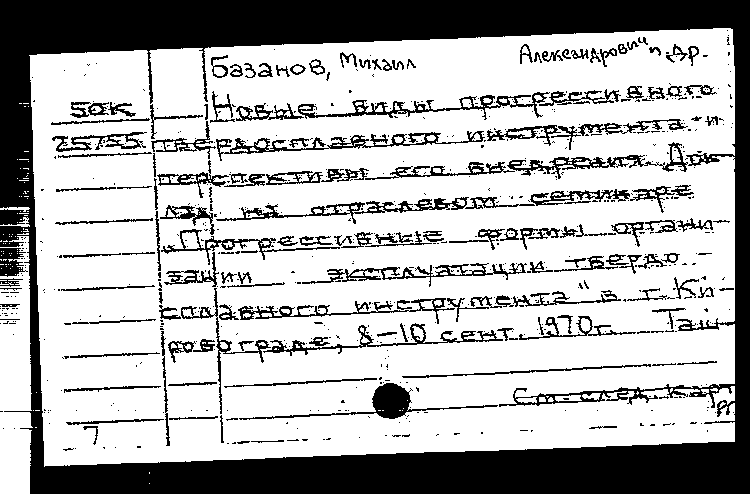 Базанов, Михаил Александрович и др.
50К Новые виды прогрессивного
25755 твердосплавного инструмента и
перспективы его внедрения. Док-
лад на отраслевом семинаре
„Прогрессивные формы органи-
зации эксплуатации твердо-
сплавного инструмента" в г. Ки-
ровограде, 8-10 сент. 1970г. Таш-
См. след. карт
7